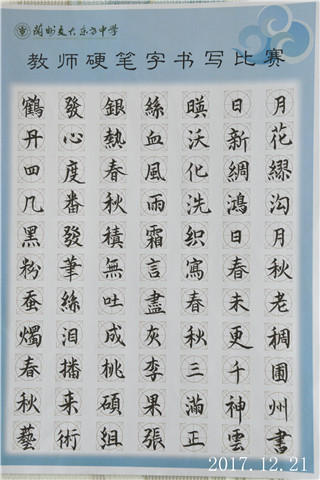 蘭州交大东方中学
教师硬笔字书写比赛
鶴發銀絲暎日月
丹心熱血沃新花
四度春風化綢繆
几番秋雨洗鴻沟
黑發積霜织日月
粉筆無言寫春秋
蚕絲吐盡春未老
燭泪成灰秋更稠
春播桃李三千圃
秋来碩果滿神州
藝術組張正雲書
2017.12.21